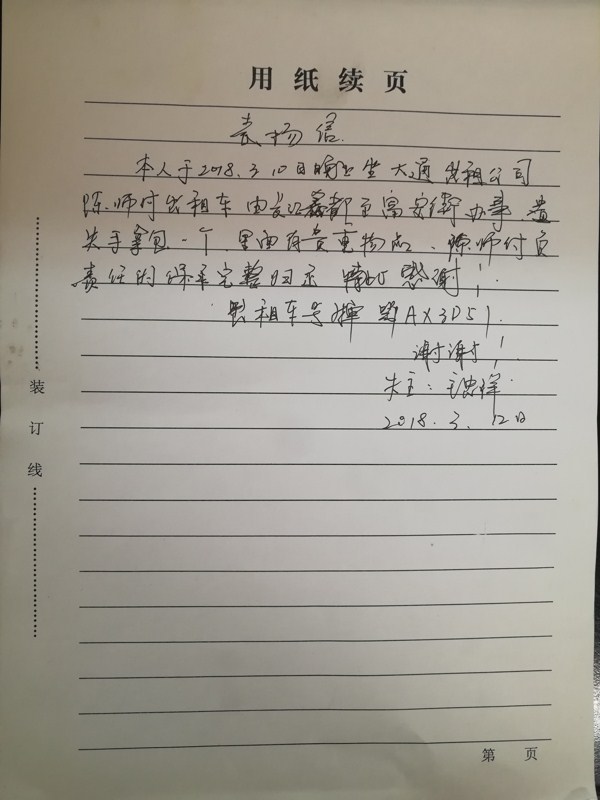 用纸续页
表扬信
本人于2018.3.10日晚上坐大通出租公司
陈师付出租车由长江都至富安街办事遗
失手拿包一个.里面有贵重物品、陈师付负
责任的保管完整归示特此感谢！
出租车号牌AX3D51.
谢谢！
失主：
2018.3.12日
装
订
线
第 页